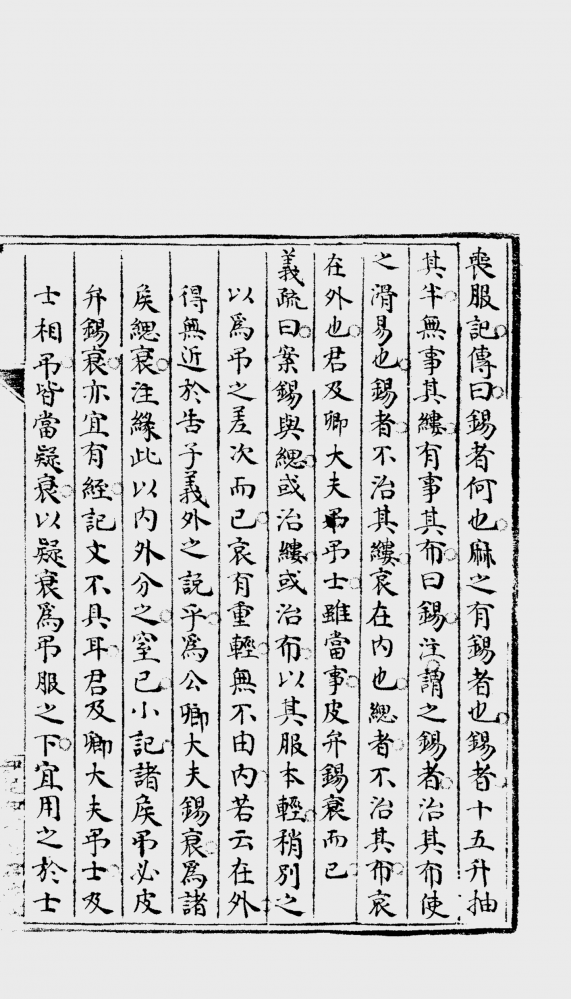 喪服記傳曰錫者何也麻之有錫者也錫者十五升抽
其半無事其縷有事其布曰錫注謂之錫者治其布使
之滑易也錫者不治其縷哀在內也緦者不治其布哀
在外也君及卿大夫弔士雖當事皮弁錫衰而已
義疏曰案錫與緦或治縷或治布以其服本輕稍別之
以為弔之差次而已哀有重輕無不由內若云在外
得無近於告子義外之說乎為公卿大夫錫衰為諸
矦緦衰注緣此以內外分之窒已小記諸矦弔必皮
弁錫衰亦宜有絰記文不具耳君及卿大夫弔士及
士相弔皆當疑衰以疑衰為弔服之下宜用之於士